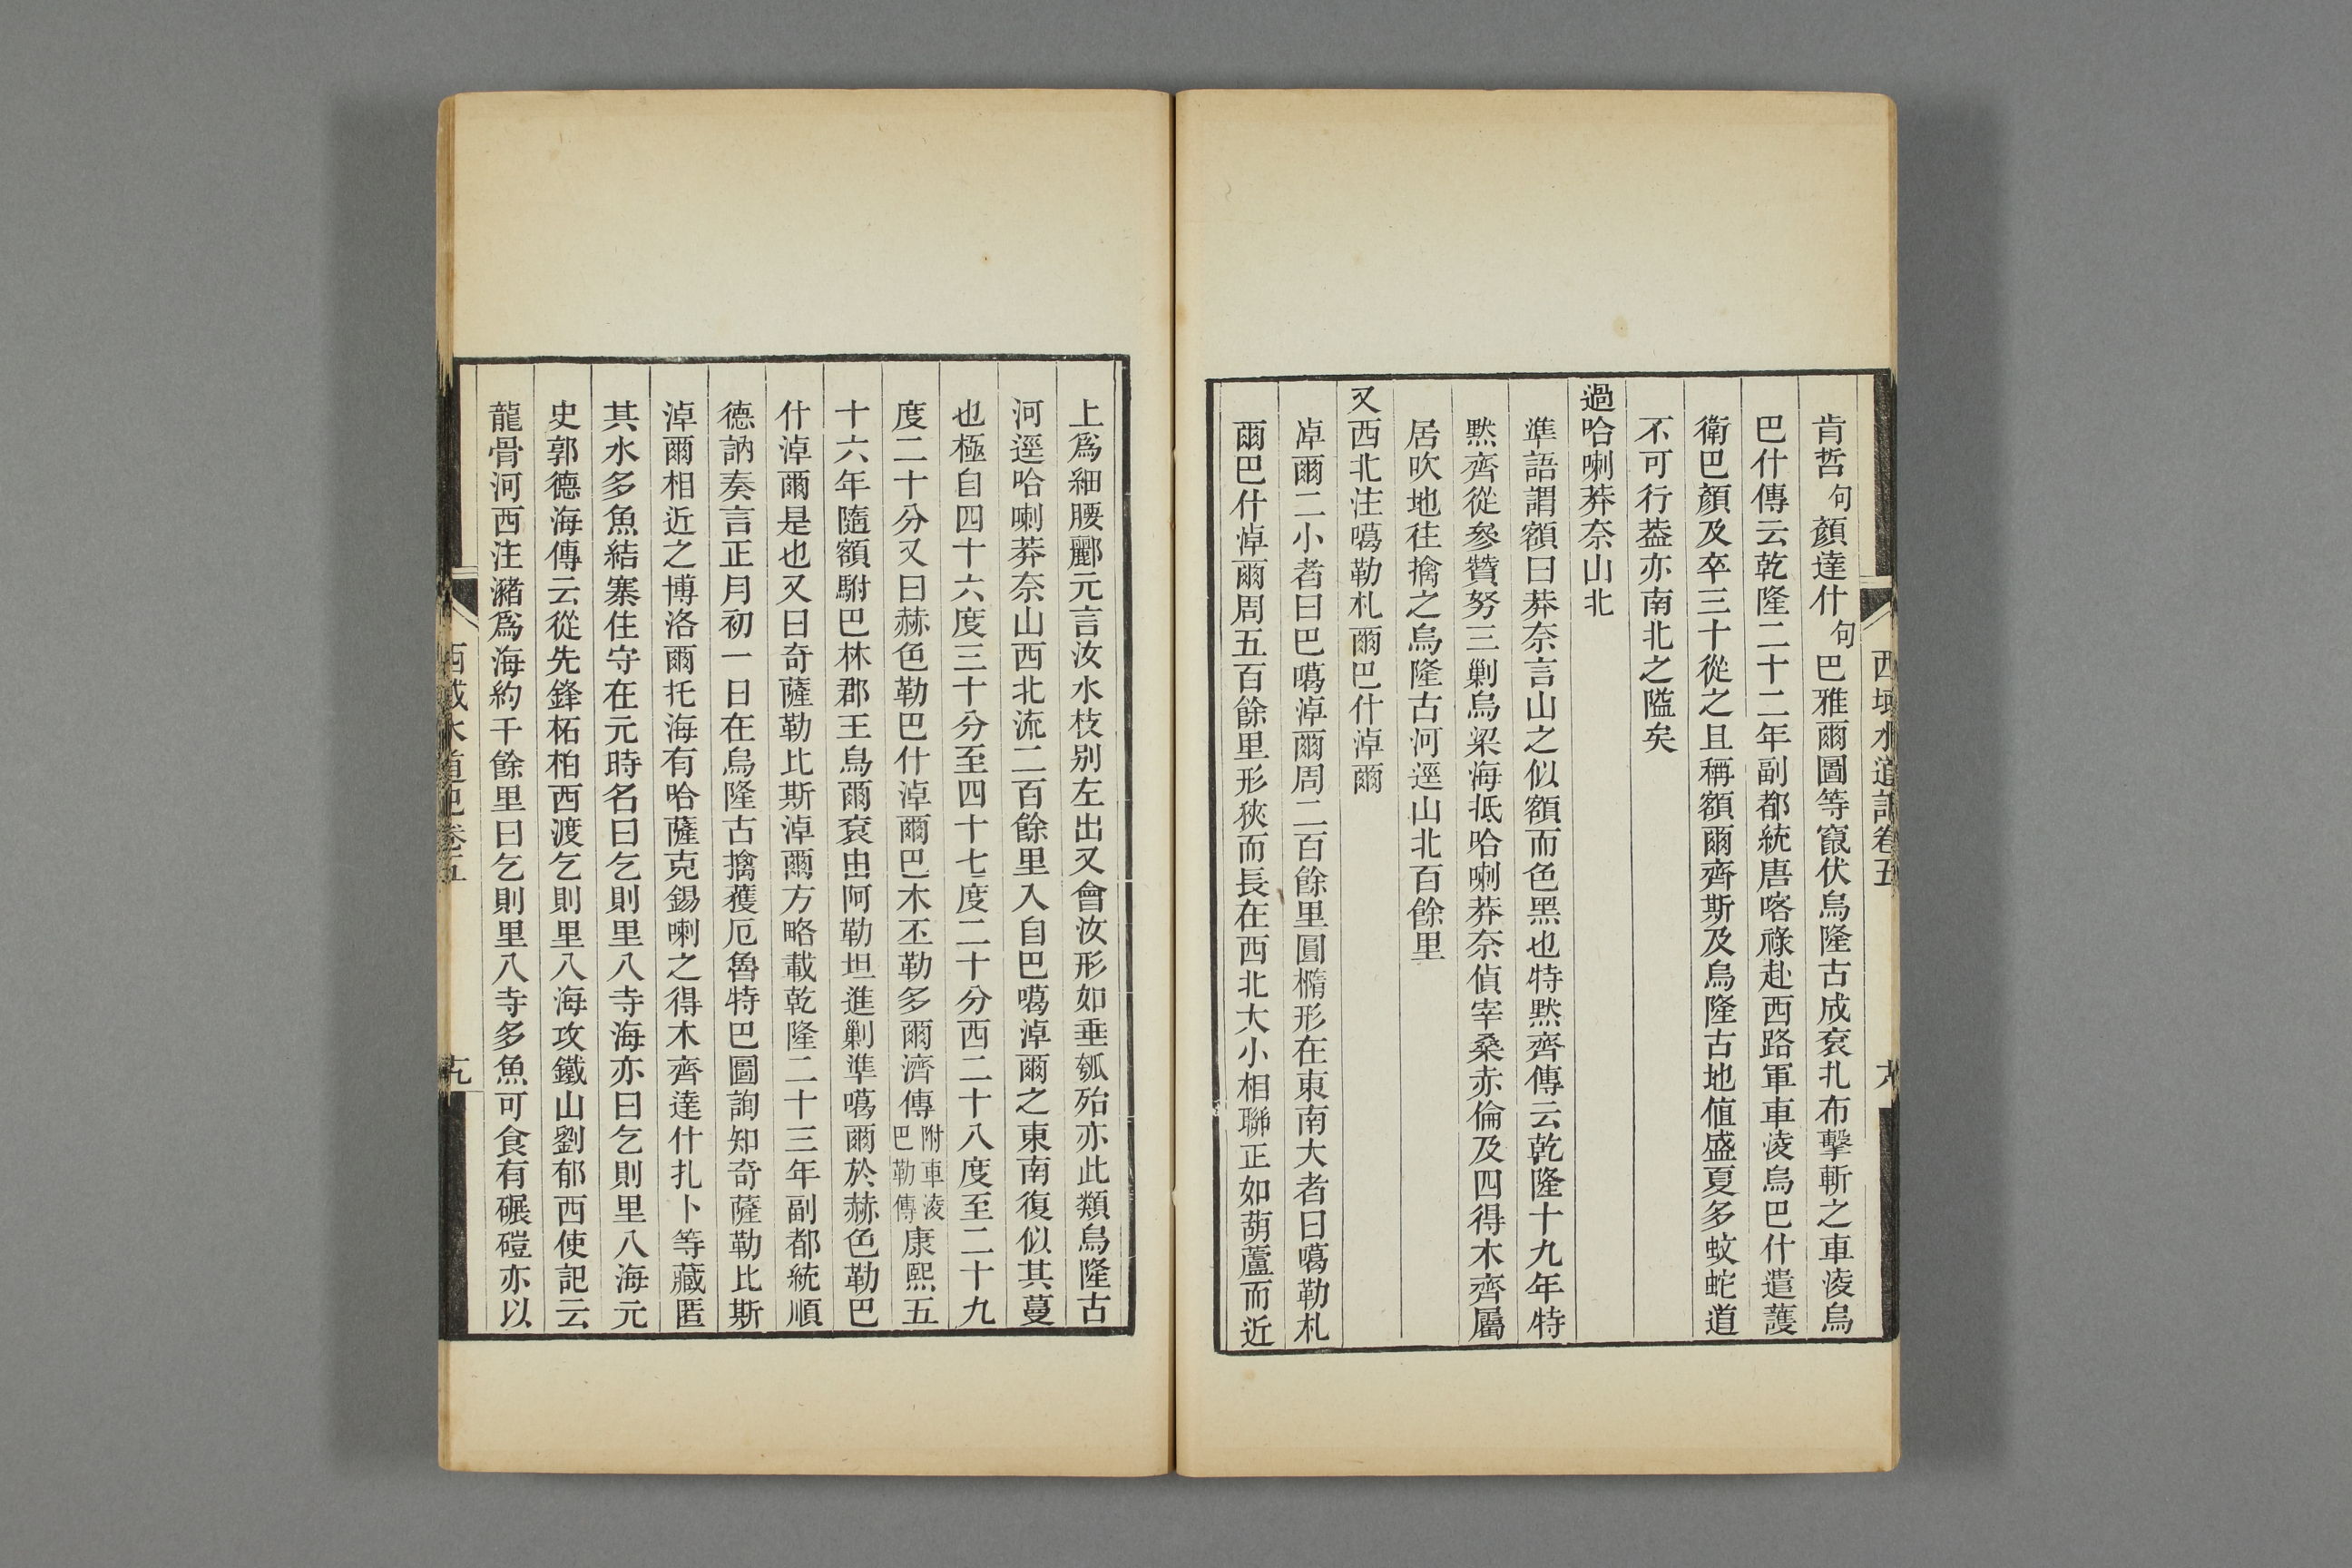 肯哲句顏達什句巴雅爾圖等竄伏烏隆古成袞扎布擊斬之車淩烏
巴什傳云乾隆二十二年副都統唐喀祿赴西路軍車淩烏巴什遣護
衛巴顏及卒三十從之且稱額爾齊斯及烏隆古地值盛夏多蚊蛇道
不可行葢亦南北之隘矣
過哈喇莽奈山北
準語謂額曰莽奈言山之似額而色黑也特默齊傳云乾隆十九年特
默齊從參贊努三剿烏梁海抵哈喇莽奈偵宰桑赤倫及四得木齊屬
居吹地往擒之烏隆古河逕山北百餘里
又西北注噶勒札爾巴什淖爾
淖爾二小者曰巴噶淖爾周二百餘里圓橢形在東南大者曰噶勒札
爾巴什淖爾周五百餘里形狹而長在西北大小相聯正如葫蘆而近
西域水道記卷五
上爲細腰酈元言汝水枝别左出又會汝形如垂瓠殆亦此類烏隆古
河逕哈喇莽奈山西北流二百餘里入自巴噶淖爾之東南復似其蔓
也極自四十六度三十分至四十七度二十分西二十八度至二十九
度二十分又曰赫色勒巴什淖爾巴木丕勒多爾濟傳附車淩巴勒傳康熙五
十六年隨額駙巴林郡王烏爾袞由阿勒坦進剿準噶爾於赫色勒巴
什淖爾是也又曰奇薩勒比斯淖爾方略載乾隆二十三年副都統順
德訥奏言正月初一日在烏隆古擒獲厄魯特巴圖詢知奇薩勒比斯
淖爾相近之博洛爾托海有哈薩克錫喇之得木齊達什扎卜等藏匿
其水多魚結寨住守在元時名曰乞則里八寺海亦曰乞則里八海元
史郭德海傳云從先鋒柘柏西渡乞則里八海攻鐵山劉郁西使記云
龍骨河西注瀦爲海約千餘里曰乞則里八寺多魚可食有碾磑亦以
西域水道記卷五
十九